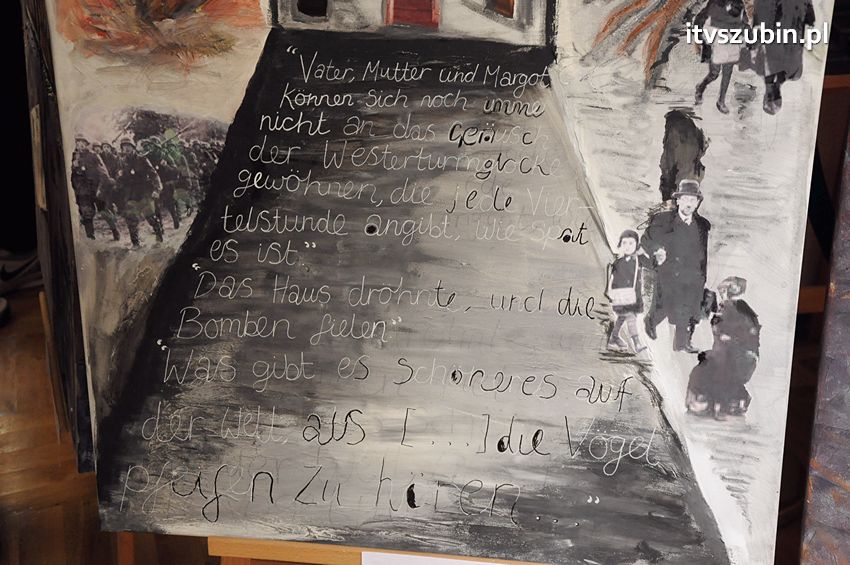 itvszubin.pl
"Vater, Mutter und Margot
können sich noch imme
nicht an das Geräusch
der Westerturmglocke
gewöhnen, die jede Vier-
telstunde angibt, wie spät
es ist."
"Das Haus dröhnte, und die
Bomben fielen"
"Was gibt es schöneres auf
der Welt, als [....] die Vögel
pfeifen zu hören...."